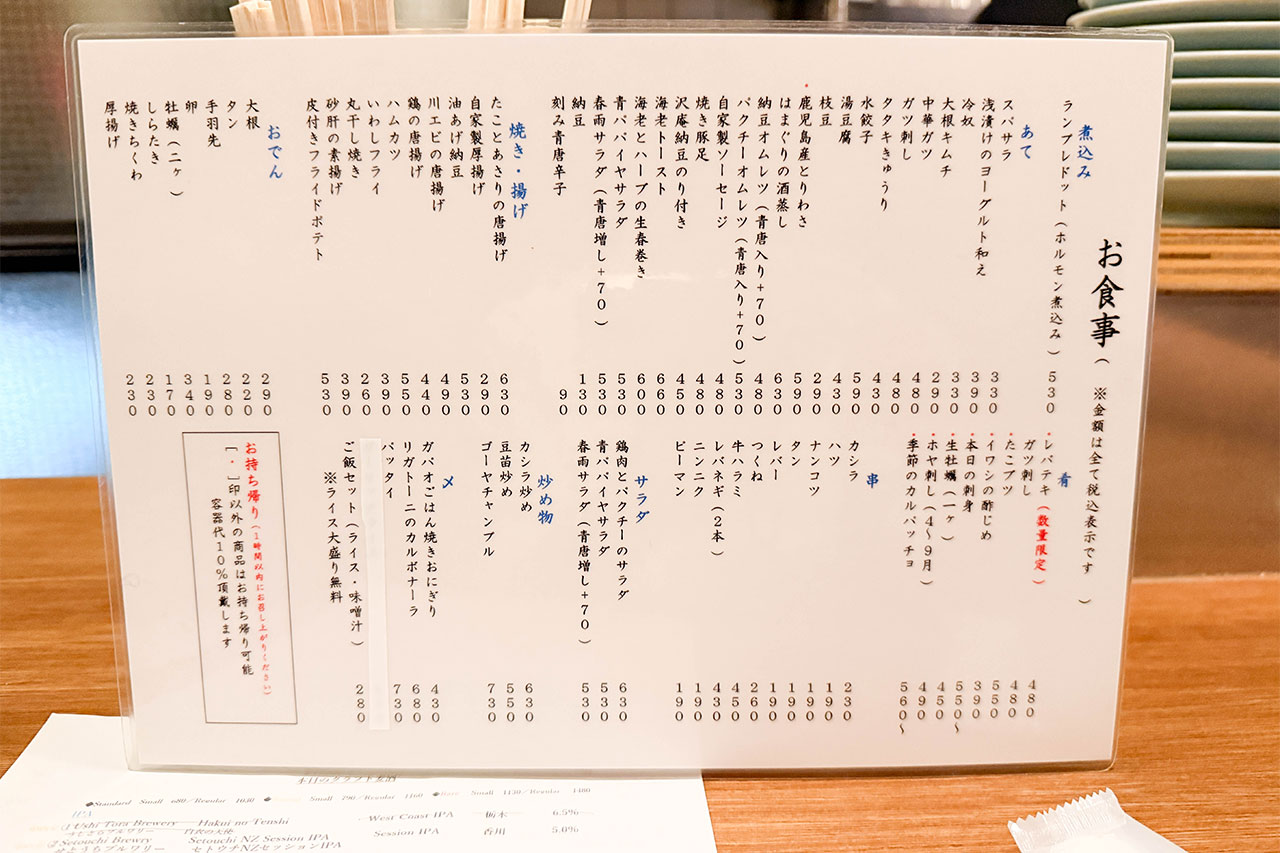 お食事（ ※金額は全て税込表示です ）
煮込み
ランプレドット（ホルモン煮込み） 530
あて
スパサラ 330
浅漬けのヨーグルト和え 390
冷奴 330
大根キムチ 290
中華ガツ 480
ガツ刺し 480
タタキきゅうり 430
水餃子 590
湯豆腐 430
枝豆 290
・鹿児島産とりわさ 590
はまぐりの酒蒸し 630
納豆オムレツ（青唐入り+70） 480
パクチーオムレツ（青唐入り+70） 530
自家製ソーセージ 480
焼き豚足 480
沢庵納豆のり付き 450
海老トースト 660
海老とハーブの生春巻き 600
青パパイヤサラダ 530
春雨サラダ（青唐増し+70） 530
納豆 130
刻み青唐辛子 90
焼き・揚げ
たことあさりの唐揚げ 630
自家製厚揚げ 290
油あげ納豆 530
川エビの唐揚げ 490
鶏の唐揚げ 440
ハムカツ 550
いわしフライ 390
丸干し焼き 260
砂肝の素揚げ 390
皮付きフライドポテト 530
おでん
大根 290
タン 220
手羽先 280
卵 190
牡蠣（二ヶ） 340
しらたき 170
焼きちくわ 230
厚揚げ 230
肴
・レバテキ（数量限定） 480
ガツ刺し 480
・たこブツ 550
・イワシの酢じめ 390
・本日の刺身 550〜
・生牡蠣（一ヶ） 450
・ホヤ刺し（4〜9月） 490
・季節のカルパッチョ 560〜
串
カシラ 230
ハツ 190
ナンコツ 190
タン 190
レバー 190
つくね 260
牛ハラミ 450
レバネギ（2本） 430
ニンニク 190
ピーマン 190
サラダ
鶏肉とパクチーのサラダ 630
青パパイヤサラダ 530
春雨サラダ（青唐増し+70） 530
炒め物
カシラ炒め 630
豆苗炒め 550
ゴーヤチャンプル 730
〆
ガパオごはん焼きおにぎり 430
リガトーニのカルボナーラ 680
パッタイ 730
ご飯セット（ライス・味噌汁） 280
※ライス大盛り無料
お持ち帰り（1時間以内にお召し上がりください）
「・」印以外の商品はお持ち帰り可能
容器代10%頂戴します
本日のクラフト麦酒
◆Standard Small 680／Regular 1030 Small 790／Regular 1160 ◆Rare Small 1130／Regular 1480
IPA
Ushi Tora Brewery Hakui no Tenshi West Coast IPA 栃木 6.5%
白衣の天使
Setouchi Brewry Setouchi NZ Session IPA Session IPA 香川 5.0%
せとうちブルワリー セトウチNZセッションIPA